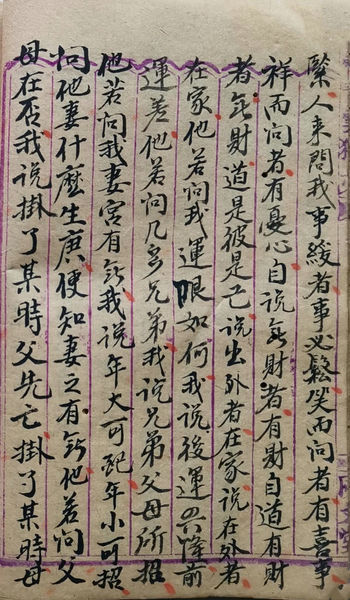 緊人来問我事緩者事必鬆笑而问者有喜事
祥而问者有憂心自说無財者有財自道有財
者無財道是彼是亡说生外者在家说在外者
在家他若问我運眼如何我说後運四六降前
運差他若问几多兄弟我说兄弟父母所招
他若问我妻宫有無我说年大可配年小可招
问他妻什麽生庚便知妻之有無他若问父
母在否我说掛了某時父先亡掛了某時母